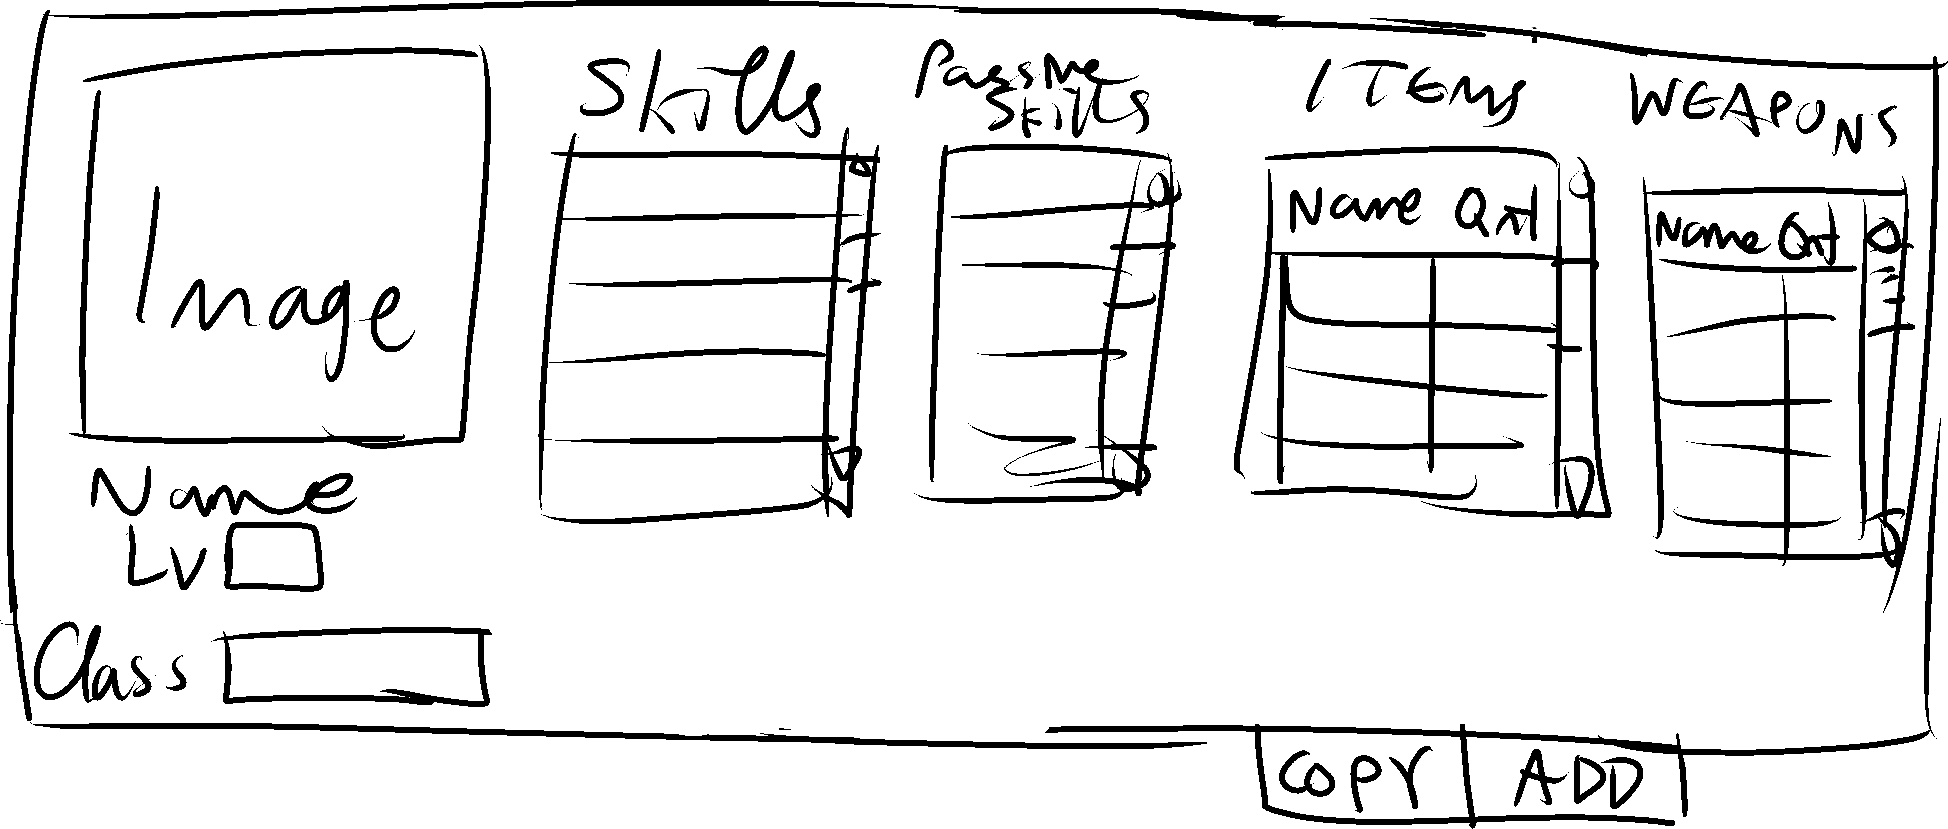 Image
Name
LV
Class
Skills
Passive
Skills
ITEMS
Name Qnt
WEAPONS
Name Qnt
COPY
ADD